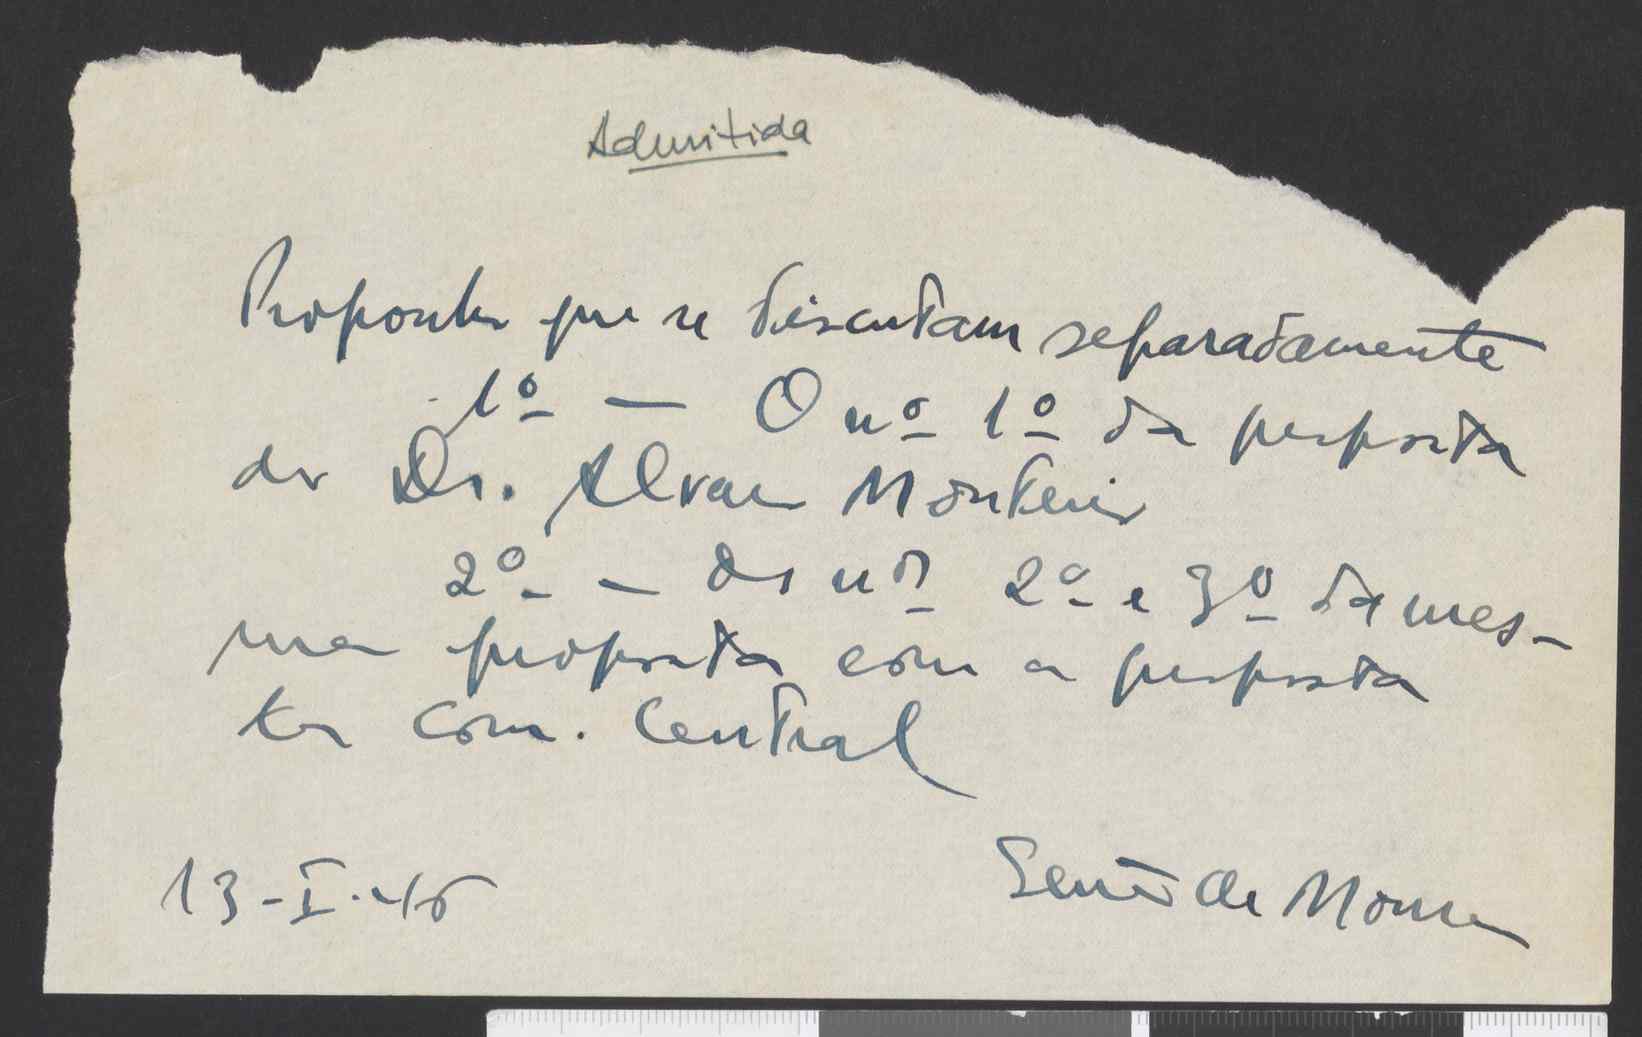 Admitida
Proponho que se discutam separadamente
1º — O nº 1º da proposta
do Dr. Alvaro Monteiro
2º — Os nos 2º e 3º da mes-
ma proposta com a proposta
da Com. Central
13-I-46
de Moura